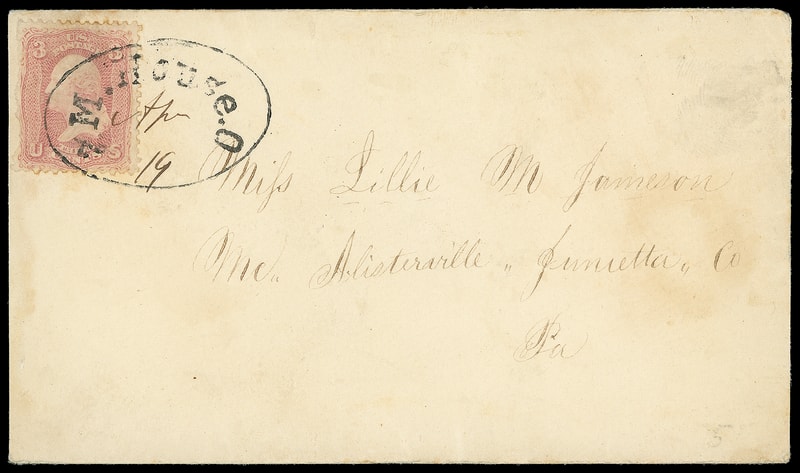 3 U.S. 3
POSTAGE
U S
M. House. O
Apr
19
Miss Lillie M Jameson
Mc. Alisterville „ Junietta „ Co
Pa
5